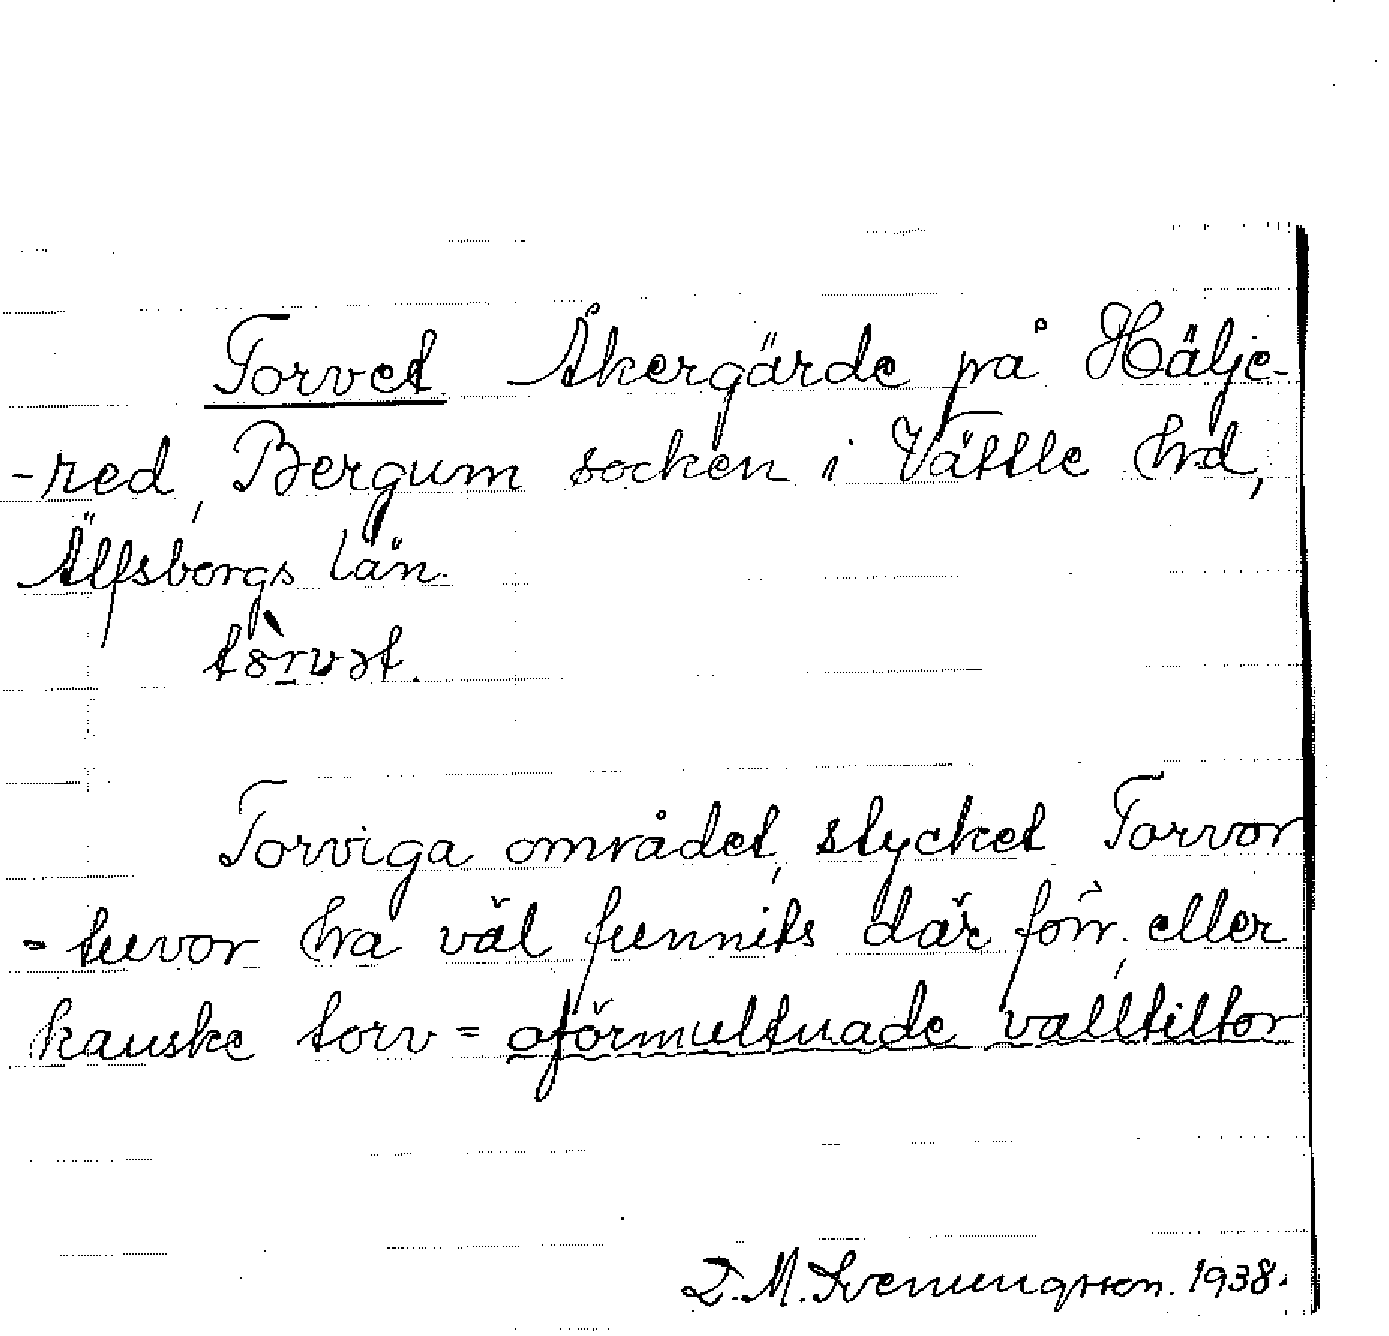 Torvet Åkergärde på Hälje-
-red, Bergum socken i Vättle hrd,
Älfsborgs län.
tòrvət.
Torviga området, stycket Torvor
-tuvor ha väl funnits där förr, eller
kanske torv = oförmultnade valltiltor
D. M. Svenungsson. 1938.